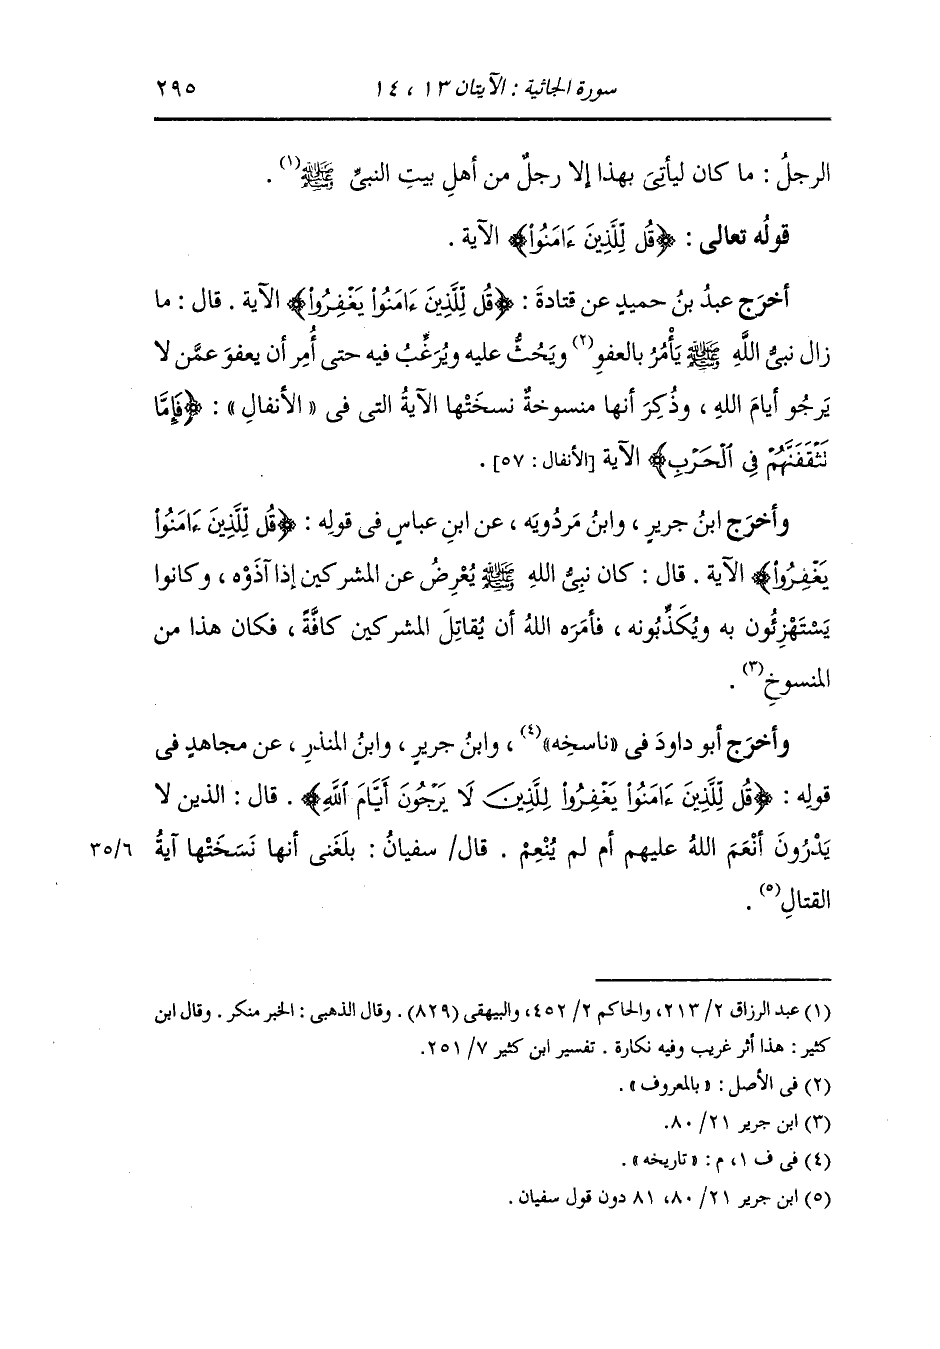 سورة الجاثية : الآيتان ١٣ ، ١٤
٢٩٥
الرجلُ : ما كان ليأتِىَ بهذا إلا رجلٌ من أهلِ بيتِ النبىِّ ﷺ(١) .
قولُه تعالى : ﴿قُل لِّلَّذِينَ ءَامَنُوا۟﴾ الآية .
أخرَج عبدُ بنُ حميدٍ عن قتادةَ : ﴿قُل لِّلَّذِينَ ءَامَنُوا۟ يَغْفِرُوا۟﴾ الآية . قال : ما
زال نبىُّ اللَّهِ ﷺ يَأْمُرُ بالعفوِ(٢) ويَحُثُّ عليه ويُرَغِّبُ فيه حتى أُمِر أن يعفوَ عمَّن لا
يَرجُو أيامَ اللهِ ، وذُكِرَ أنها منسوخةٌ نسخَتْها الآيةُ التى فى « الأنفالِ » : ﴿فَإِمَّا
تَثْقَفَنَّهُمْ فِى ٱلْحَرْبِ﴾ الآية [الأنفال : ٥٧] .
وأخرَج ابنُ جريرٍ ، وابنُ مَردُويَه ، عن ابنِ عباسٍ فى قولِه : ﴿قُل لِّلَّذِينَ ءَامَنُوا۟
يَغْفِرُوا۟﴾ الآية . قال : كان نبىُّ اللهِ ﷺ يُعْرِضُ عن المشركين إذا آذَوْه ، وكانوا
يَسْتَهْزِئُون به ويُكَذِّبُونه ، فأمَرَه اللهُ أن يُقاتِلَ المشركين كافَّةً ، فكان هذا من
المنسوخِ(٣) .
وأخرَج أبو داودَ فى «ناسخِه»(٤) ، وابنُ جريرٍ ، وابنُ المنذرِ ، عن مجاهدٍ فى
قولِه : ﴿قُل لِّلَّذِينَ ءَامَنُوا۟ يَغْفِرُوا۟ لِلَّذِينَ لَا يَرْجُونَ أَيَّامَ ٱللَّهِ﴾ . قال : الذين لا
يَدْرُونَ أنْعَمَ اللهُ عليهم أم لم يُنْعِمْ . قال/ سفيانُ : بلَغَنى أنها نَسَخَتْها آيةُ ٣٥/٦
القتالِ(٥) .
(١) عبد الرزاق ٢/ ٢١٣، والحاكم ٢/ ٤٥٢، والبيهقى (٨٢٩) . وقال الذهبى : الخبر منكر . وقال ابن
كثير : هذا أثر غريب وفيه نكارة . تفسير ابن كثير ٧/ ٢٥١.
(٢) فى الأصل : « بالمعروف » .
(٣) ابن جرير ٢١/ ٨٠.
(٤) فى ف ١، م : « تاريخه » .
(٥) ابن جرير ٢١/ ٨٠، ٨١ دون قول سفيان .